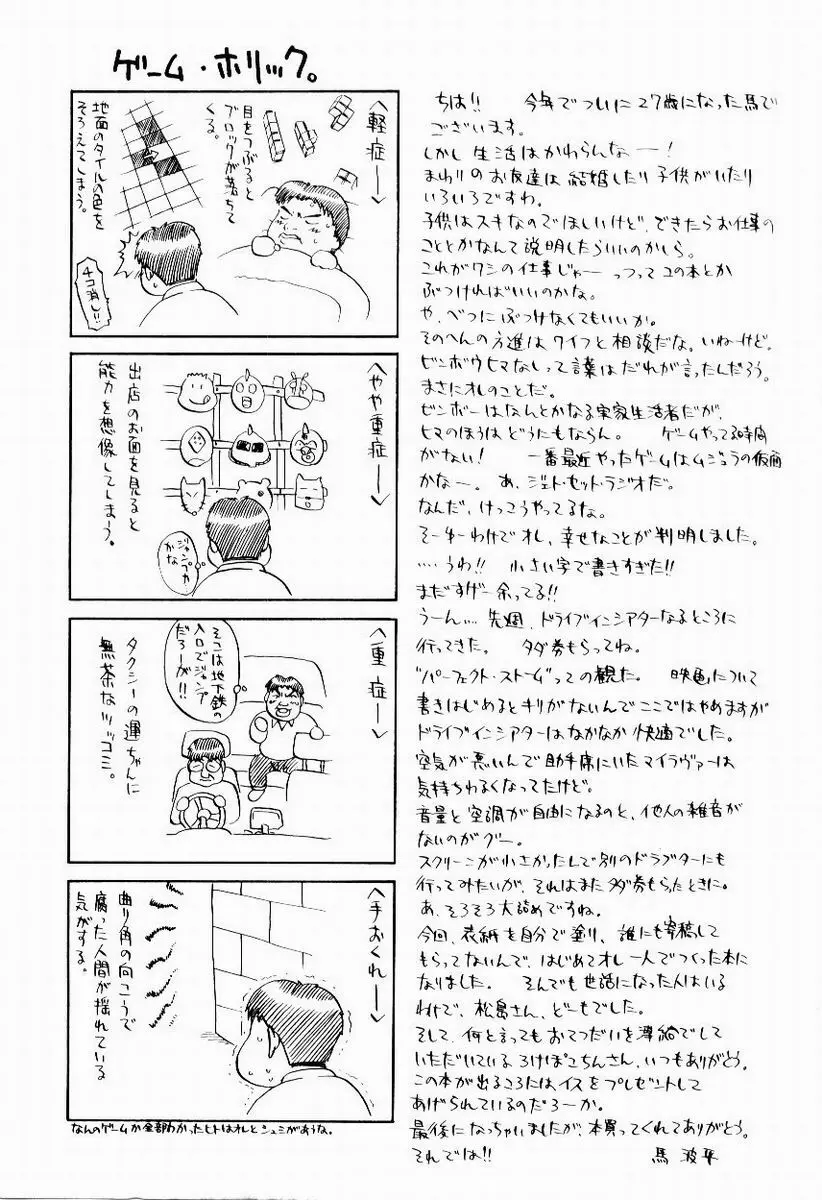 ゲーム・ホリック。
〈軽症ー〉
目をつぶると
ブロックが落ちて
くる。
地面のタイルの色を
そろえてしまう。
4コ消し!!
〈やや重症〉
出店のお面を見ると
能力を想像してしまう。
ジャンプカ
かな
〈重症ー〉
そこは地下鉄の
入口でジャンプ
だろーが!!
タクシーの運ちゃんに
無茶なツッコミ。
〈手おくれー〉
曲り角の向こうで
腐った人間が揺れている
気がする。
なんのゲームか全部わかったヒトはオレとシュミがあうな。
ちは!! 今年でついに27歳になった馬で
ございます。
しかし生活はかわらんなー!
まわりのお友達は結婚したり子供がいたり
いろいろですわ。
子供はスキなのでほしいけど、できたらお仕事の
こととかなんて説明したらいいのかしら。
これがワシの仕事じゃー っつってコの本とか
ぶつければいいのかな。
や、べつにぶつけなくてもいいか。
そのへんの方進はワイフと相談だな。いねーけど。
ビンボウヒマなしって言葉はだれが言ったんだろう。
まさにオレのことだ。
ビンボーはなんとかなる実家生活者だが、
ヒマのほうはどうにもならん。 ゲームやってる時間
がない! 一番最近やったゲームはムジュラの仮面
かなー。 あ、ジェト・セット・ラジオだ。
なんだ、けっこうやってるな。
そーゆーわけでオレ、幸せなことが判明しました。
…うわ!! 小さい字で書きすぎた!!
まだすげー余ってる!!
うーん… 先週、ドライブインシアターなるところに
行ってきた。 タダ券もらってね。
"パーフェクト・ストーム"っての観た。 映画について
書きはじめるとキリがないんでここではやめますが
ドライブインシアターはなかなか快適でした。
空気が悪いんで助手席にいたマイラヴァーは
気持ちわるくなってたけど。
音量と空調が自由になるのと、他人の雑音が
ないのがグー。
スクリーンが小さかったんで別のドラブターにも
行ってみたいが、それはまたタダ券もらたときに。
あ、そろそろ大詰めですね。
今回、表紙を自分で塗り、誰にも寄稿して
もらってないんで、はじめてオレ一人でつくった本に
なりました。 そんでも世話になった人はいる
わけで、松島さん、どーもでした。
そして、何と言ってもおてつだいを薄給でして
いただいている ろけぽこちんさん、いつもありがとう。
この本が出るころにはイスをプレゼントして
あげられているのだろーか。
最後になっちゃいましたが、本買ってくれてありがとう。
それでは!! 馬 波平